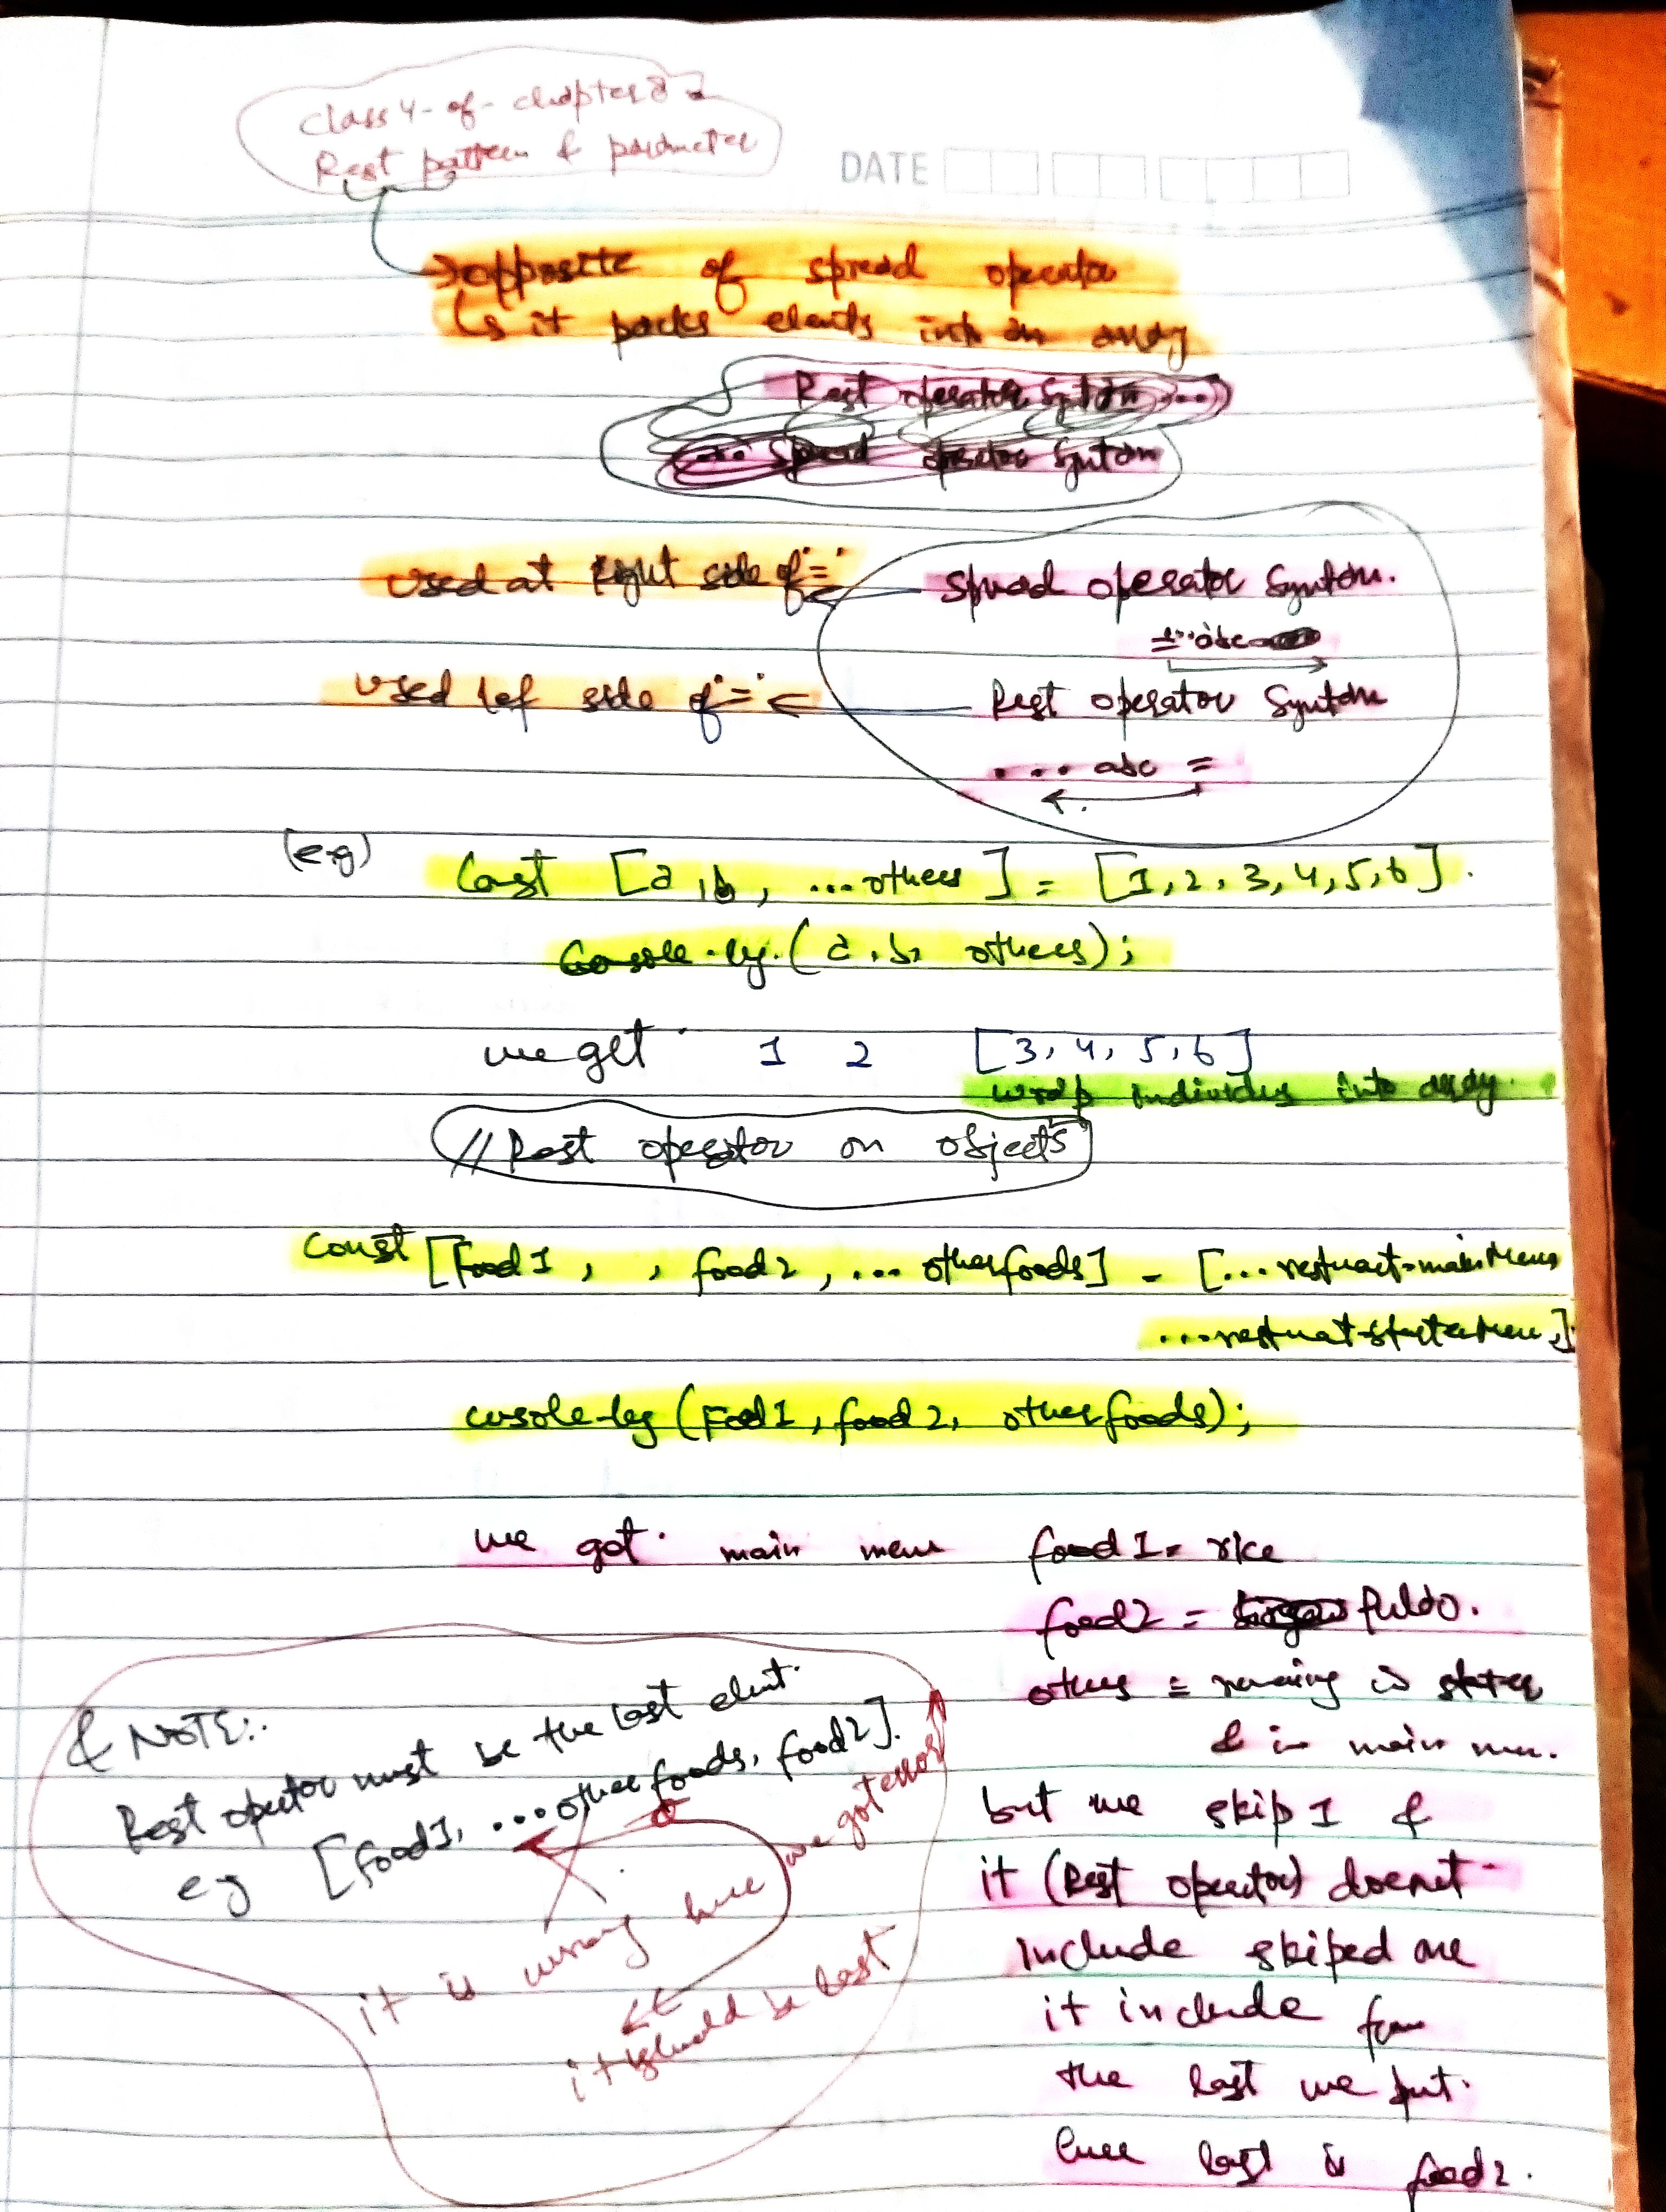 class 4-of-chapter 8
Rest pattern & parameter
DATE
→opposite of spread operator
↳ it packs elents into an array
Rest operator Syntax ...
... Spread operator Syntax
used at Right side of '='
Spread operator Syntax.
=...abc
used lef side of '=' ←
Rest operator Syntax
...abc =
(eg)
Const [a, b, ...others] = [1, 2, 3, 4, 5, 6].
Console.log.(a, b, others);
we get 1 2 [3, 4, 5, 6]
wrap individus into array.
// Rest operator on objects
const [Food1, , food2, ...otherfoods] =
console.log(Food1, food2, otherfoods);
we got. main menu food1= rice
food2 =
others = remaing is stater
& in main
but we skip 1 &
it (Rest operator) doenet
include skiped one
it include from
the last we put.
here last is food2.
& NOTE:.
Rest opertor must be the last elent.
eg [food1, ...otherfoods, food2].
it is wrong here we got error
it should be last